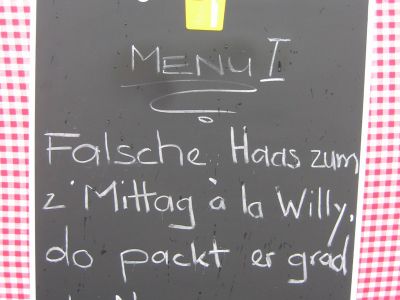 MENU I
Falsche Haas zum
z'Mittag à la Willy,
do packt er grad